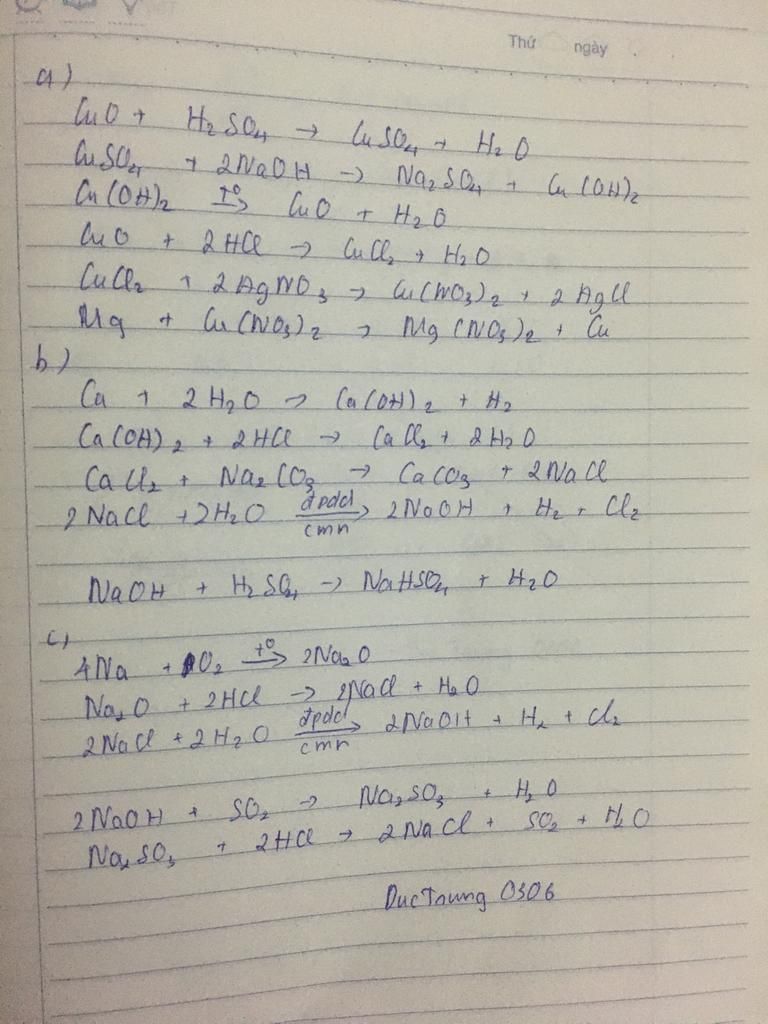 Thứ ngày
a)
CuO + H2SO4 → CuSO4 + H2O
CuSO4 + 2NaOH → Na2SO4 + Cu(OH)2
Cu(OH)2 t° → CuO + H2O
CuO + 2HCl → CuCl2 + H2O
CuCl2 + 2AgNO3 → Cu(NO3)2 + 2AgCl
Mg + Cu(NO3)2 → Mg(NO3)2 + Cu
b)
Ca + 2H2O → Ca(OH)2 + H2
Ca(OH)2 + 2HCl → CaCl2 + 2H2O
CaCl2 + Na2CO3 → CaCO3 + 2NaCl
2NaCl + 2H2O đpdd → 2NaOH + H2 + Cl2
cmn
NaOH + H2SO4 → NaHSO4 + H2O
c)
4Na + O2 t° → 2Na2O
Na2O + 2HCl → 2NaCl + H2O
2NaCl + 2H2O đpdd → 2NaOH + H2 + Cl2
cmn
2NaOH + SO2 → Na2SO3 + H2O
Na2SO3 + 2HCl → 2NaCl + SO2 + H2O
DucTrung 0306